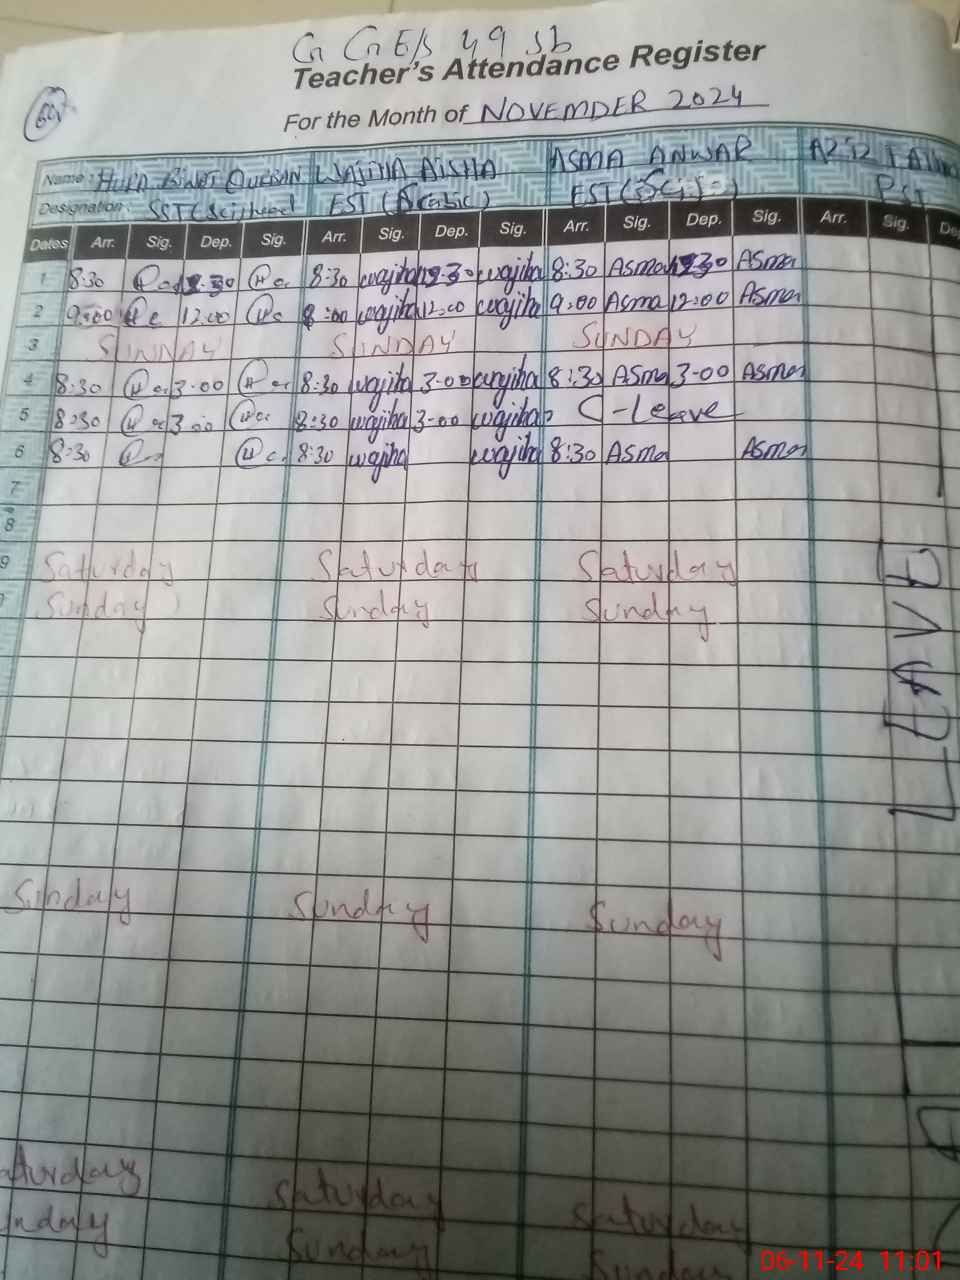 G G E/S 49 Sb
Teacher's Attendance Register
For the Month of NOVEMDER 2024
Name: BINT WAJIHA AISHA ASMA ANWAR
Designation: SST (Sci) head EST (Arabic) EST (Sci)
Dates Arr. Sig. Dep. Sig. Arr. Sig. Dep. Sig. Arr. Sig. Dep. Sig. Arr. Sig.
1 8:30 8:30 wajiha wajiha 8:30 Asma Asma
2 9:00 12:00 wajiha 12:00 wajiha 9:00 Asma 12:00 Asma
3 SUNNAY SUNDAY SUNDAY
4 8:30 3-00 8:30 wajiha 3-00 wajiha 8:30 ASma 3-00 Asma
5 8:30 3:00 8:30 wajiha 3-00 wajiha C-Leave
6 8:30 8:30 wajiha wajiha 8:30 ASma ASma
7
8
9 Saturday Saturday Saturday
Sunday Sunday Sunday
LEAVE
Sunday Sunday Sunday
aturday Saturday Saturday
nday Sunday Sunday
06-11-24 11:01